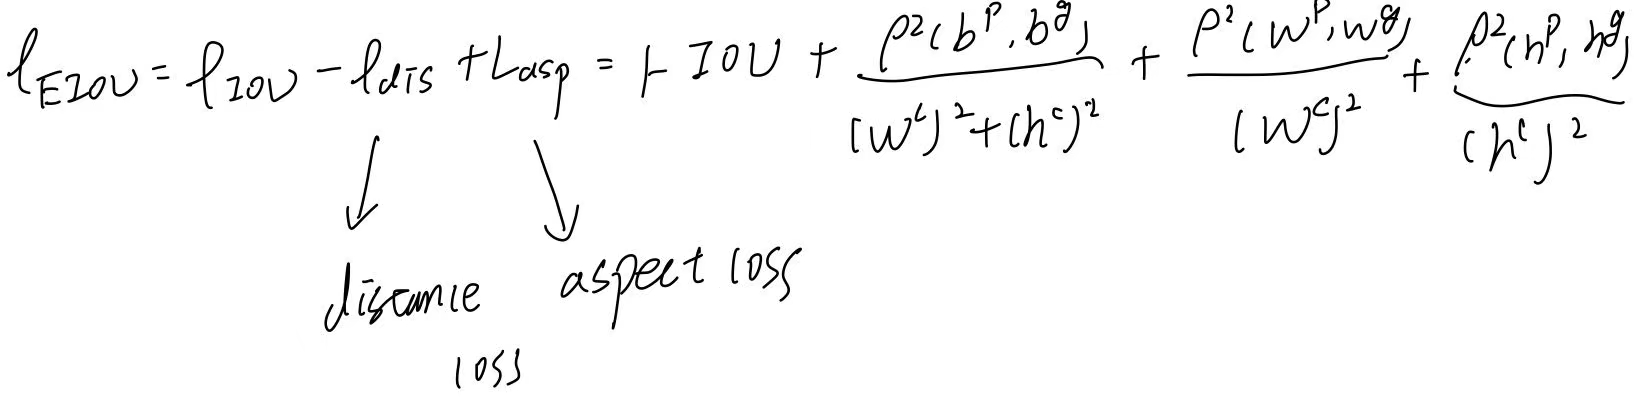 l_EIOU = l_IOU - l_dis + L_asp = 1 - IOU + ρ²(b^p, b^g) / ((w^c)² + (h^c)²) + ρ²(w^p, w^g) / (w^c)² + ρ²(h^p, h^g) / (h^c)²
distance aspect loss
loss